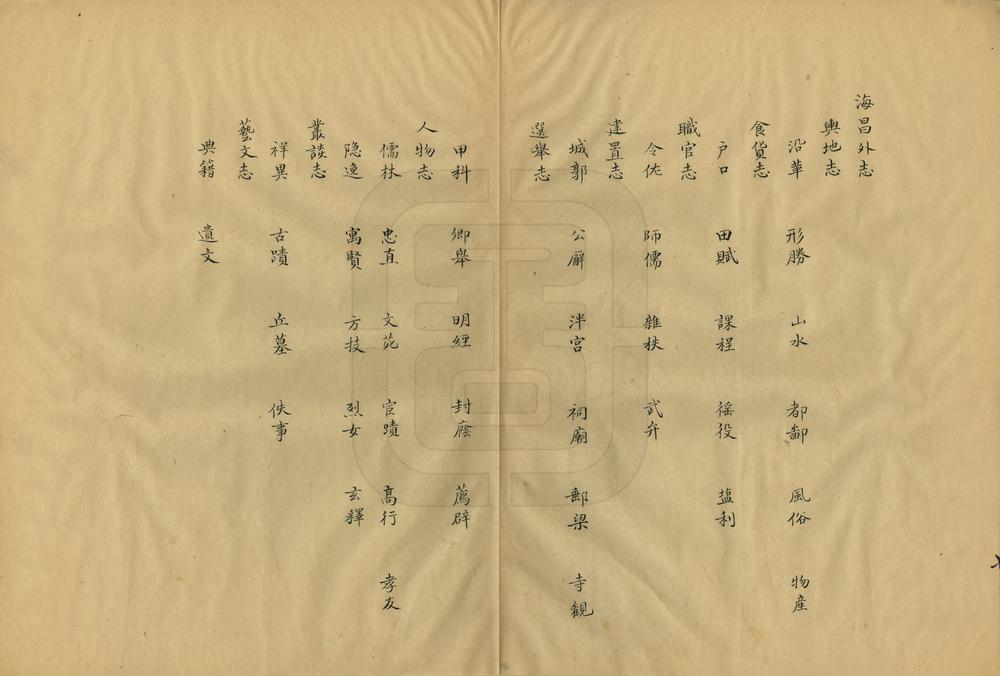 海昌外志
輿地志
沿革 形勝 山水 都鄙 風俗 物産
食貨志
户口 田賦 課程 徭役 塩利
職官志
令佐 師儒 雜秩 武弁
建置志
城郭 公廨 泮宮 祠廟 郵梁 寺観
選舉志
甲科 鄉舉 明經 封廕 薦辟
人物志
儒林 忠直 文苑 宦蹟 高行 孝友
隐逸 寓賢 方技 烈女 玄釋
叢談志
祥異 古蹟 丘墓 佚事
藝文志
典籍 遺文